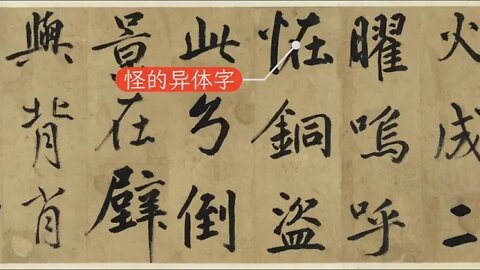 火成二
曜嗚呼
恠銅盜
此兮倒
景在壁
與背肖
怪的异体字